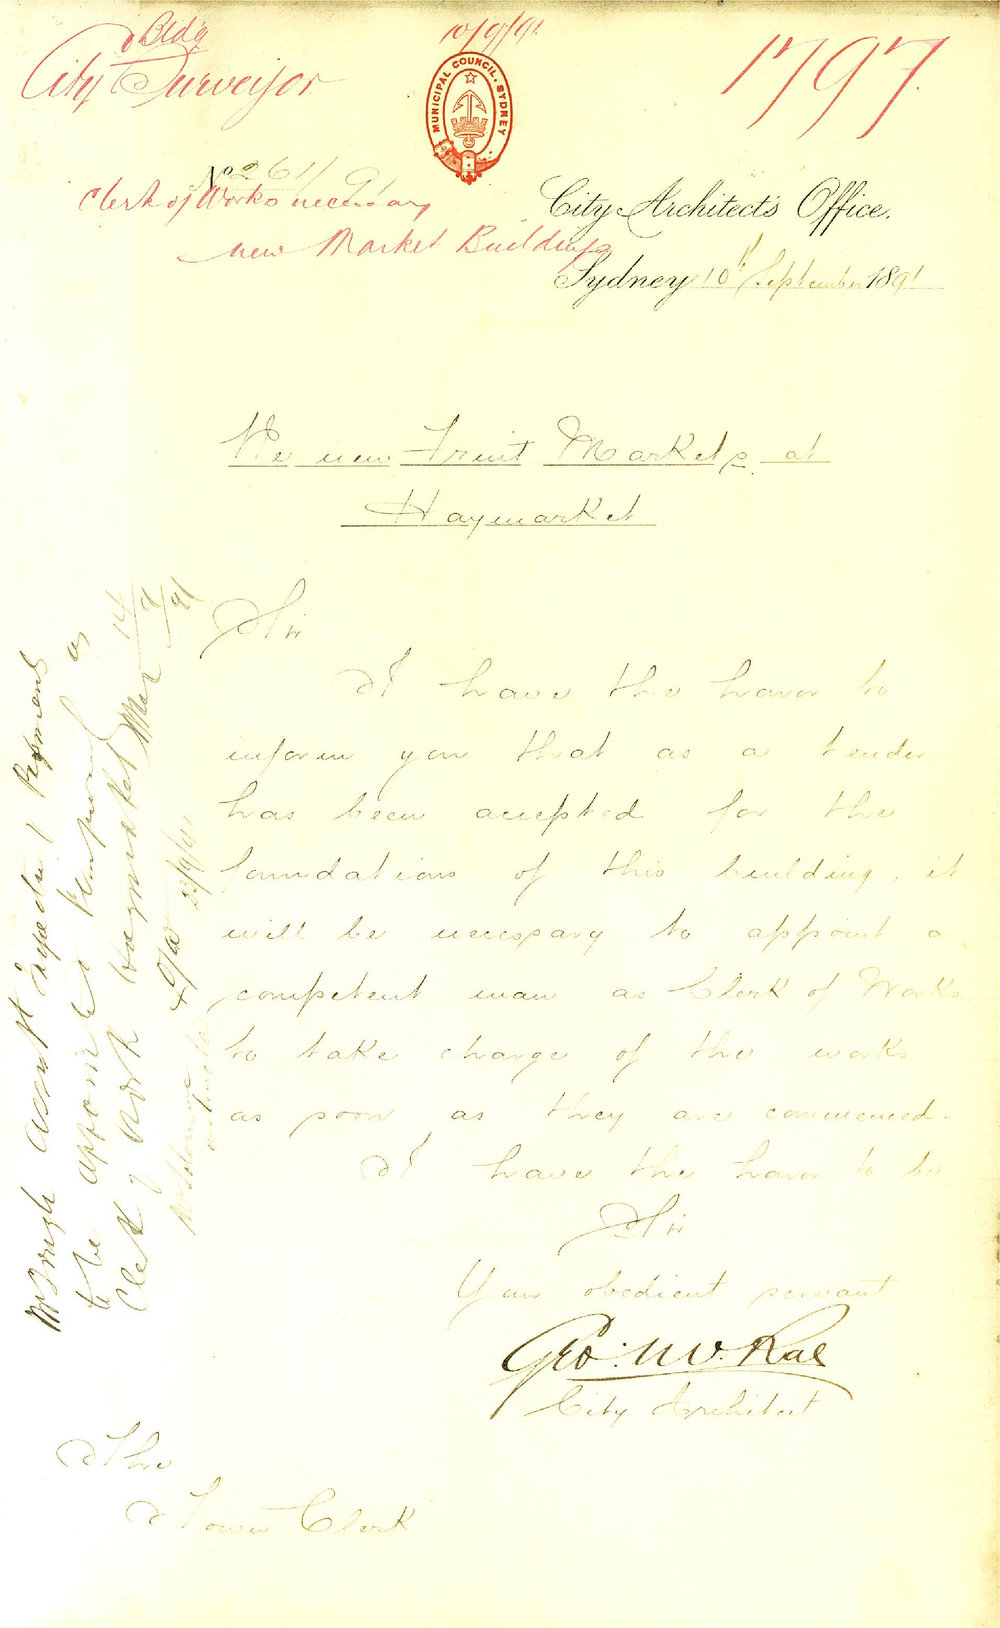 Bldg
City Surveyor
10/9/91
1797
MUNICIPAL COUNCIL. SYDNEY
No 261/91
Clerk of Works necessary
new Market Buildings
City Architect's Office.
Sydney 10th September 1891
Re new Fruit Markets at
Haymarket
Sir
I have the honor to
inform you that as a tender
has been accepted for the
foundations of this building, it
will be necessary to appoint a
competent man as Clerk of Works
to take charge of the works
as soon as they are commenced.
I have the honor to be
Sir
Your obedient servant
Geo: McRae
City Architect
The
Town Clerk
assist Inspector
to be appointed temporarily as
Clerk of Work Haymarket 14/9/91
23/9/91